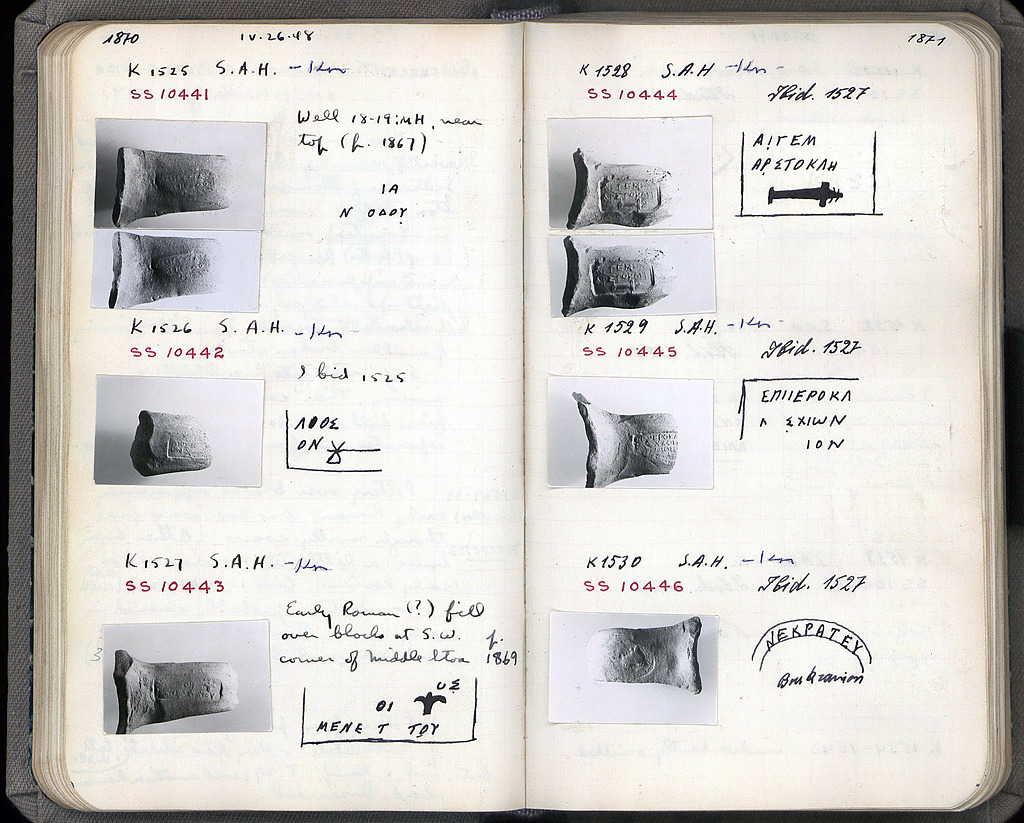 1870 IV.26.48
K 1525 S.A.H. -Kn
SS 10441
Well 18-19:ΜΗ, near
top (p. 1867)
ΙΑ
Ν ΟΔΟΥ
K 1526 S.A.H. -Kn
SS 10442
Ibid 1525
ΛΘΟΣ
ΟΝ
K 1527 S.A.H. -Kn
SS 10443
Early Roman (?) fill
over blocks at S.W. p.
corner of Middle Stoa 1869
ΥΣ
ΟΙ
ΜΕΝΕ Τ ΤΟΥ
1871
K 1528 S.A.H -Kn
SS 10444 Ibid. 1527
ΑΙΓΕΜ
ΑΡΙΣΤΟΚΛΗ
K 1529 S.A.H. -Kn
SS 10445 Ibid. 1527
ΕΠΙΙΕΡΟΚΛ
Λ ΣΧΙΩΝ
ΙΟΝ
K 1530 S.A.H. -Kn
SS 10446 Ibid. 1527
ΝΕΚΡΑΤΕΥ
Boukranion